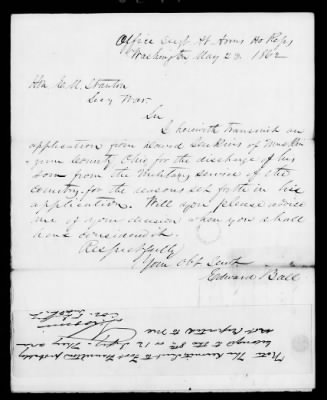 Office Sergt At Arms Ho Reps
Washington May 23. 1862
Hon. E. M. Stanton
Secy War.
Sir
I herewith transmit an
application from David Jenkins of Muskin-
gum County Ohio for the discharge of his
son from the military service of the
country, for the reasons set forth in his
application. Will you please advise
me of your decision when you shall
have considered it.
Respectfully
Your Obt Servt
Edward Ball
Note The
to the 8th or 12 Infy. They are
not reported to me